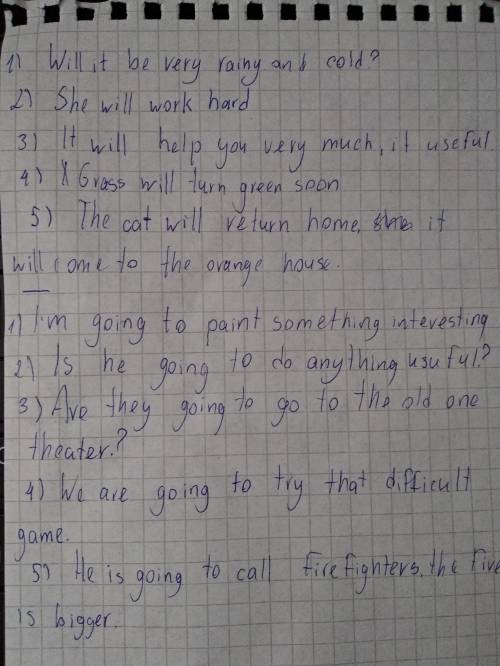 1) Will it be very rainy and cold?
2) She will work hard
3) It will help you very much, it useful
4) Grass will turn green soon
5) The cat will return home, it
will come to the orange house.
1) I'm going to paint something interesting
2) Is he going to do anything usuful.?
3) Are they going to go to the old one
theater.?
4) We are going to try that difficult
game.
5) He is going to call firefighters, the fire
is bigger.